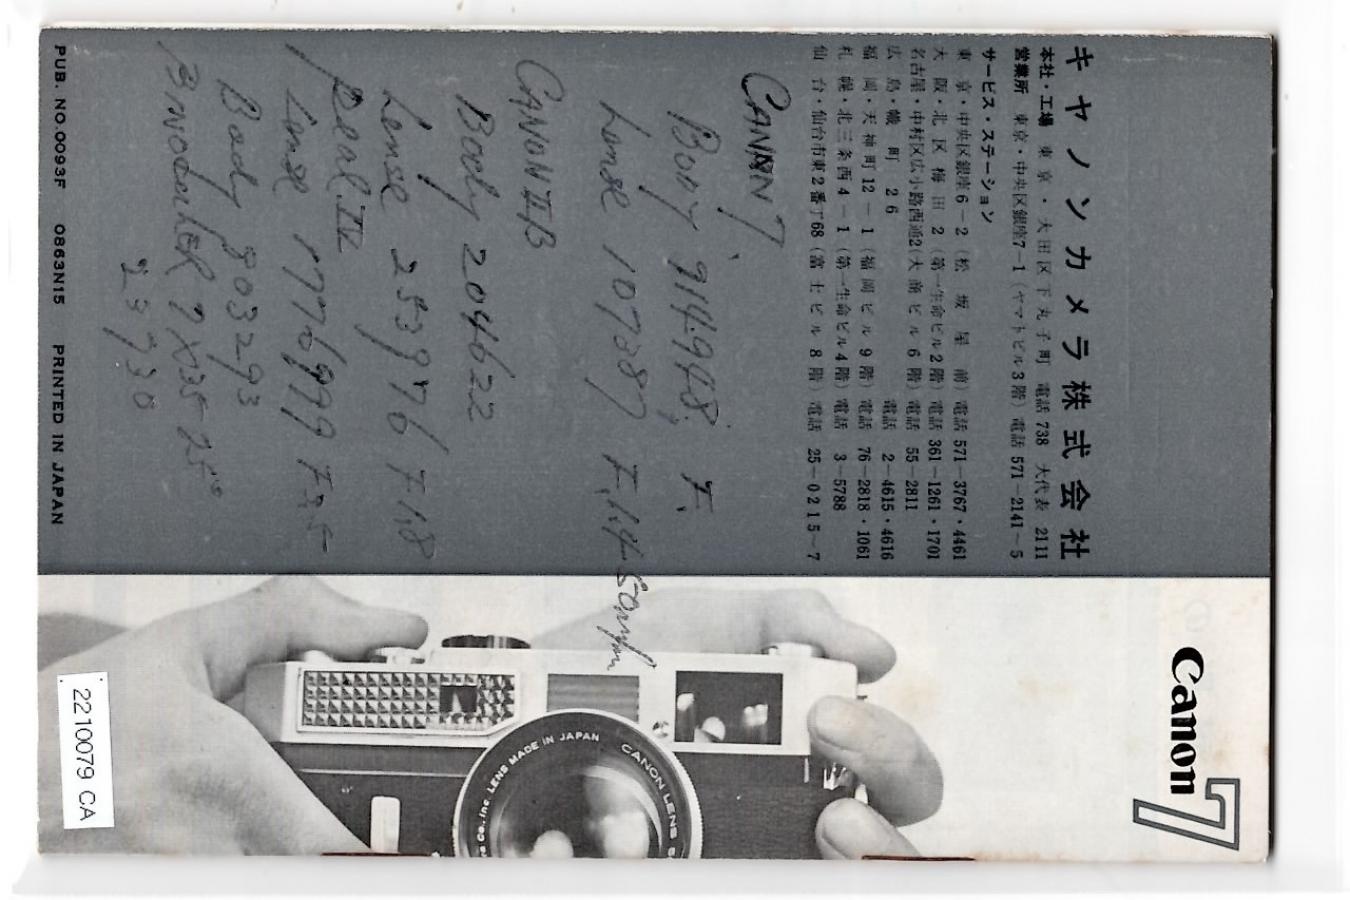 キヤノンカメラ株式会社
本社・工場 東京・大田区下丸子町 電話 738 大代表 2111
営業所 東京・中央区銀座7-1(ヤマトビル3階)電話 571-2141-5
サービス・ステーション
東京・中央区銀座6-2(松坂屋前)電話 571-3767・4461
大阪・北区梅田2(第一生命ビル2階)電話 361-1261・1701
名古屋・中村区広小路西通2(大商ビル6階)電話 55-2811
広島・幟町26 電話 2-4615・4616
福岡・天神町12-1(福岡ビル9階)電話 76-2818・1061
札幌・北三条西4-1(第一生命ビル4階)電話 3-5788
仙台・仙台市東2番丁68(富士ビル8階)電話 25-0215-7
CANON 7
Body 914948
Lense 107287 F.1.4
CANON IIB
Body 204622
Lense 253976 F-1.8
Lense 1776999 F3.5
Body 803293
BINOCULER 7X35 25°
23730
PUB. NO.0093F 0863N15 PRINTED IN JAPAN
Canon 7
LENS MADE IN JAPAN
CANON LENS
2210079 CA